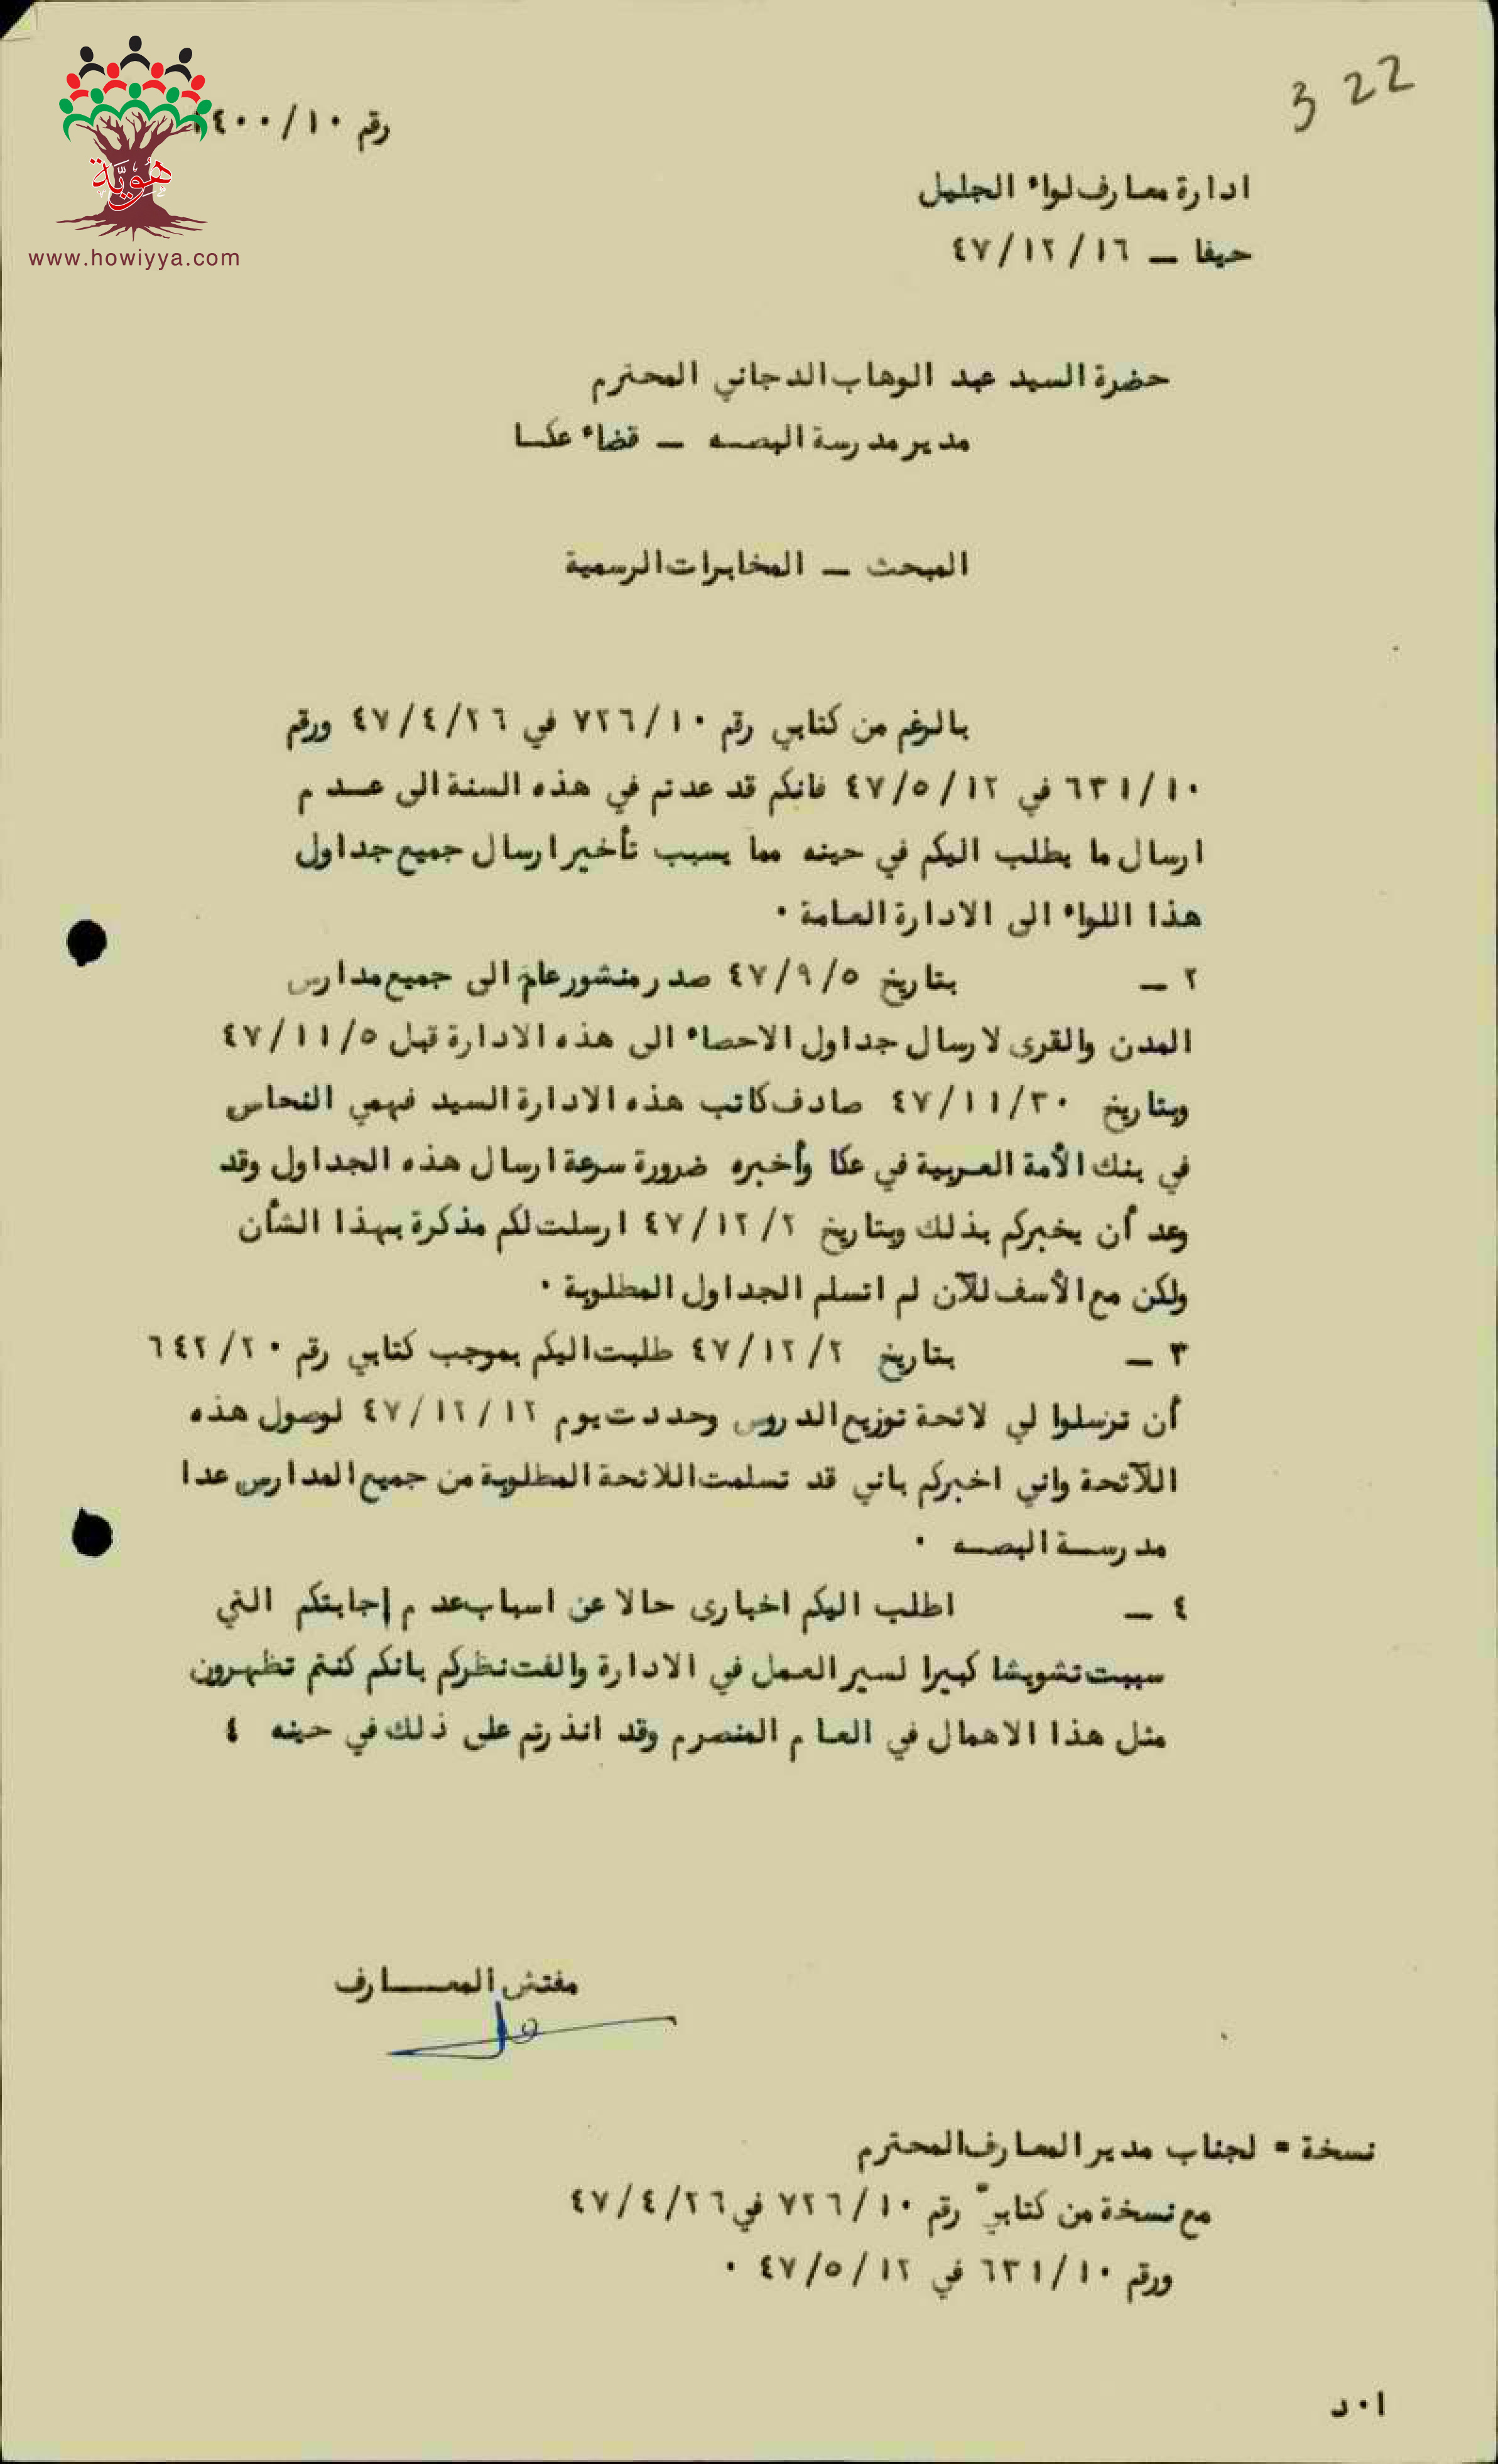 3 22
رقم ١٠/٤٠٠
هُوِيَّة
www.howiyya.com
ادارة معارف لواء الجليل
حيفا – ٤٧/١٢/١٦
حضرة السيد عبد الوهاب الدجاني المحترم
مدير مدرسة البصه – قضاء عكا
المبحث – المخابرات الرسمية
بالرغم من كتابي رقم ٧٢٦/١٠ في ٤٧/٤/٢٦ ورقم
٦٣١/١٠ في ٤٧/٥/١٢ فانكم قد عدتم في هذه السنة الى عدم
ارسال ما يطلب اليكم في حينه مما يسبب تأخير ارسال جميع جداول
هذا اللواء الى الادارة العامة ٠
٢ – بتاريخ ٤٧/٩/٥ صدر منشور عام الى جميع مدارس
المدن والقرى لارسال جداول الاحصاء الى هذه الادارة قبل ٤٧/١١/٥
وبتاريخ ٤٧/١١/٣٠ صادف كاتب هذه الادارة السيد فهمي النحاس
في بنك الأمة العربية في عكا وأخبره ضرورة سرعة ارسال هذه الجداول وقد
وعد أن يخبركم بذلك وبتاريخ ٤٧/١٢/٢ ارسلت لكم مذكرة بهذا الشأن
ولكن مع الأسف للآن لم اتسلم الجداول المطلوبة ٠
٣ – بتاريخ ٤٧/١٢/٢ طلبت اليكم بموجب كتابي رقم ٦٤٢/٢٠
أن ترسلوا لي لائحة توزيع الدروس وحددت يوم ٤٧/١٢/١٢ لوصول هذه
اللآئحة واني اخبركم باني قد تسلمت اللائحة المطلوبة من جميع المدارس عدا
مدرسة البصه ٠
٤ – اطلب اليكم اخباري حالا عن اسباب عدم إجابتكم التي
سببت تشويشا كبيرا لسير العمل في الادارة والفت نظركم بانكم كنتم تظهرون
مثل هذا الاهمال في العام المنصرم وقد انذرتم على ذلك في حينه ٤
مفتش المعارف
نسخة = لجناب مدير المعارف المحترم
مع نسخة من كتابيّ رقم ٧٢٦/١٠ في ٤٧/٤/٢٦
ورقم ٦٣١/١٠ في ٤٧/٥/١٢ ٠
ا٠د